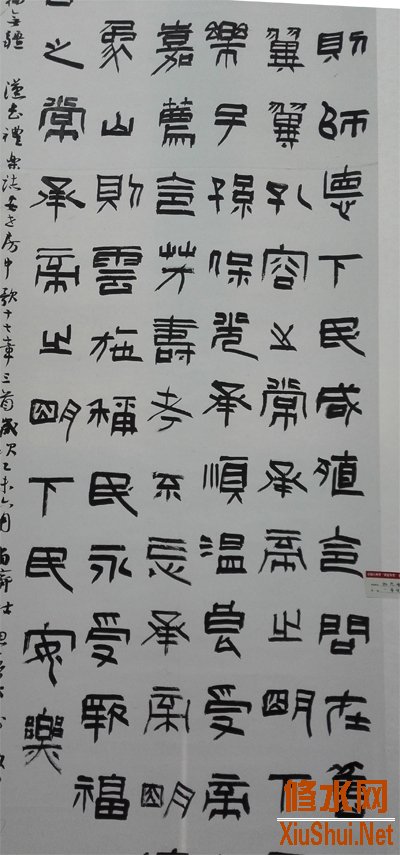 則師德下民咸殖令問在舊
翼翼孔容之常承帝之明下
樂子孫保光承順溫良受帝
嘉薦令芳壽考不忘承帝明
象山則雲施稱民永受厥福
之常承帝之明下民安樂
福無疆 漢書禮樂志安世房中歌十七章三首歲次乙未六月
修水网
XiuShui.Net